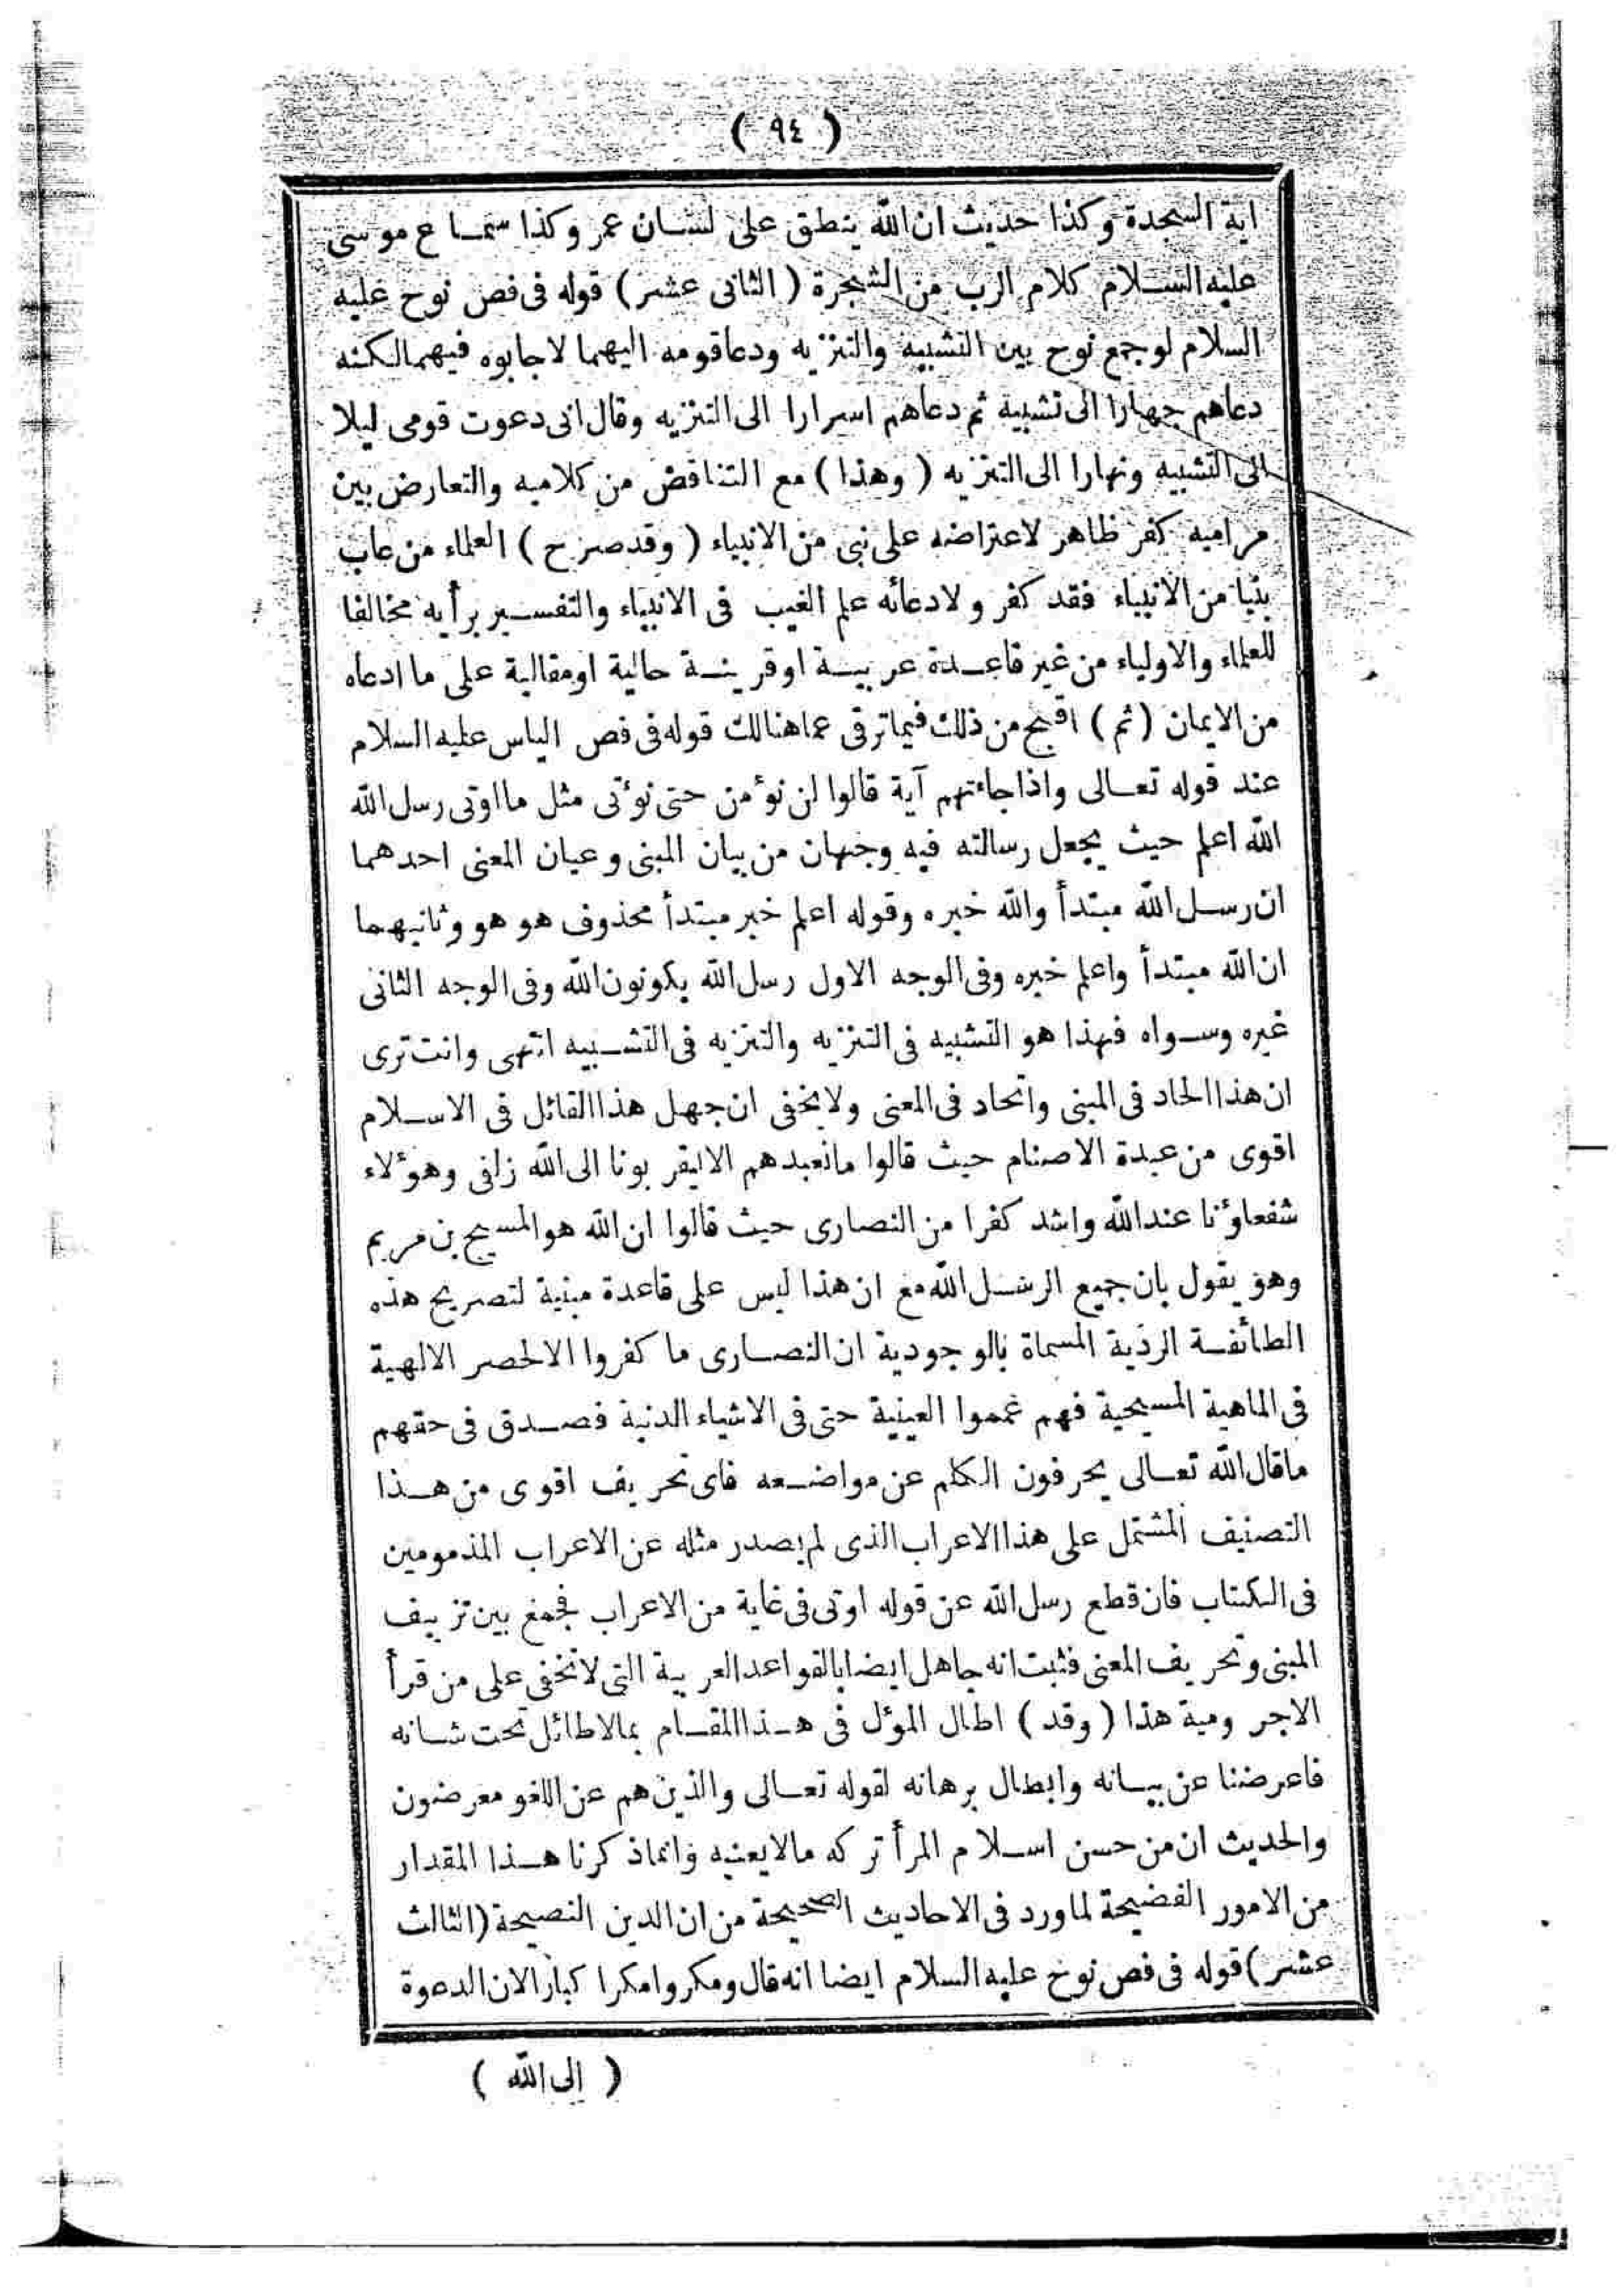 ( ٩٤ )
اية السجدة وكذا حديث ان الله ينطق على لسان عمر وكذا سماع موسى
عليه السلام كلام الرب من الشجرة ( الثانى عشر ) قوله فى فص نوح عليه
السلام لوجمع نوح بين التشبيه والتنزيه ودعاقومه اليهما لاجابوه فيهما لكنه
دعاهم جهارا الى تشبيه ثم دعاهم اسرارا الى التنزيه وقال انى دعوت قومى ليلا
الى التشبيه ونهارا الى التنزيه ( وهذا ) مع التناقض من كلاميه والتعارض بين
مراميه كفر ظاهر لاعتراضه على نبى من الانبياء ( وقدصرح ) العلماء من عاب
نبيا من الانبياء فقد كفر ولادعائه علم الغيب فى الانبياء والتفسير برأيه مخالفا
للعلماء والاولياء من غير قاعدة عربية اوقرينة حالية اومقالية على ماادعاه
من الايمان ( ثم ) اقبح من ذلك فيماترقى عماهنالك قوله فى فص الياس عليه السلام
عند قوله تعالى واذا جاءتهم آية قالوا لن نؤمن حتى نؤتى مثل مااوتى رسل الله
الله اعلم حيث يجعل رسالته فيه وجهان من بيان المبنى وعيان المعنى احدهما
ان رسل الله مبتدأ والله خبره وقوله اعلم خبر مبتدأ محذوف هو هو وثانيهما
ان الله مبتدأ واعلم خبره وفى الوجه الاول رسل الله يكونون الله وفى الوجه الثانى
غيره وسواه فهذا هو التشبيه فى التنزيه والتنزيه فى التشبيه انتهى وانت ترى
ان هذا الحاد فى المبنى واتحاد فى المعنى ولايخفى ان جهل هذا القائل فى الاسلام
اقوى من عبدة الاصنام حيث قالوا مانعبدهم الاليقربونا الى الله زلفى وهؤلاء
شفعاؤنا عندالله واشد كفرا من النصارى حيث قالوا ان الله هو المسيح بن مريم
وهو يقول بان جميع الرسل الله مع ان هذا ليس على قاعدة مبنية لتصريح هذه
الطائفة الردية المسماة بالوجودية ان النصارى ما كفروا الالحصر الالهية
فى الماهية المسيحية فهم عمموا العينية حتى فى الاشياء الدنية فصدق فى حقهم
ماقال الله تعالى يحرفون الكلم عن مواضعه فاى تحريف اقوى من هذا
التصنيف المشتمل على هذا الاعراب الذى لم يصدر مثله عن الاعراب المذمومين
فى الكتاب فان قطع رسل الله عن قوله اوتى فى غاية من الاعراب فجمع بين تزييف
المبنى وتحريف المعنى فثبت انه جاهل ايضا بالقواعد العربية التى لاتخفى على من قرأ
الاجرومية هذا ( وقد ) اطال المؤل فى هذا المقام بمالاطائل تحت شانه
فاعرضنا عن بيانه وابطال برهانه لقوله تعالى والذين هم عن اللغو معرضون
والحديث ان من حسن اسلام المرأ تركه مالايعنيه وانماذكرنا هذا المقدار
من الامور الفضيحة لماورد فى الاحاديث الصحيحة من ان الدين النصيحة ( الثالث
عشر ) قوله فى فص نوح عليه السلام ايضا انه قال ومكروا مكرا كبارالان الدعوة
( الى الله )